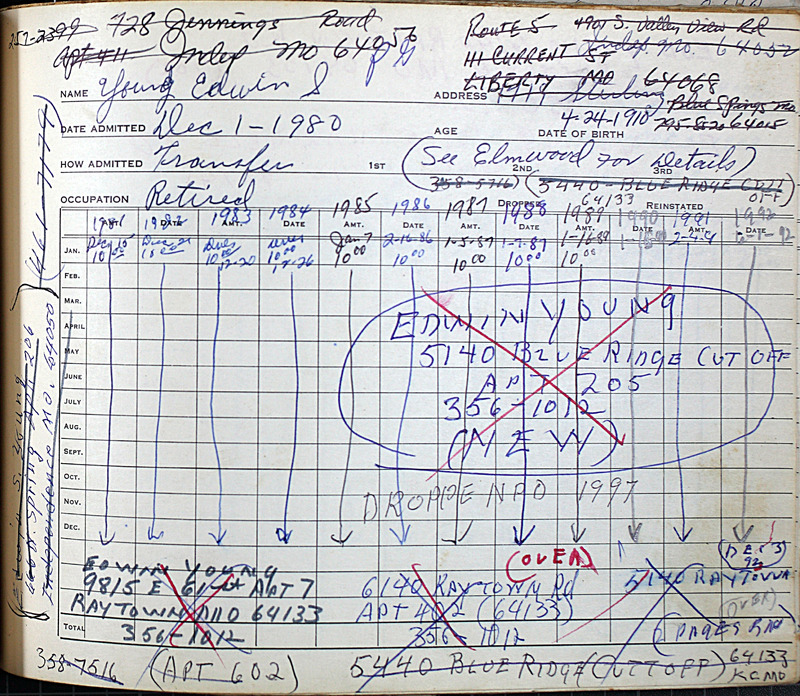 257-2399 728 Jennings Road
Apt 411 Indep Mo 64056
Route 5 4901 S. Valley View Rd
111 CURRENT ST Indep. Mo. 64052
LIBERTY MO 64068
NAME Young Edwin S ADDRESS
Blue Springs Mo
795-8120 64015
DATE ADMITTED Dec 1-1980 AGE DATE OF BIRTH 4-24-1910
HOW ADMITTED Transfer 1ST (See Elmwood for Details)
2ND 3RD
358-5716 (5440-BLUE RIDGE CUTT
OFF
OCCUPATION Retired DROPPED 64133 REINSTATED
1981 1982 1983 1984 1985 1986 1987 1988 1989 1990 1991 1992
DATE AMT. DATE AMT. DATE AMT. DATE AMT. DATE
JAN. Dec 15 Dec 21 Dues Dues Jan 7 2-16-86 1-5-87 1-7-87 1-16-89 2-4-9
10.00 10.00 10.00 10.00 10.00 10.00 10.00 10.00
12-20 12-26
FEB.
MAR.
EDWIN YOUNG
APRIL
MAY 5140 BLUE RIDGE CUT OFF
JUNE APT 205
JULY 356-1012
AUG.
(NEW)
SEPT.
OCT.
DROPPE NPD 1997
NOV.
DEC.
(OVER) (DEC 3
92)
EDWIN YOUNG
9815 E 61st APT 7 6140 RAYTOWN Rd 5140 RAYTOWN
RAYTOWN MO 64133 APT 402 (64133) (OVER)
TOTAL 356-1012 356-1012
358-7516 (APT 602) 5440 BLUE RIDGE (CUTTOFF) 64133
KCMO
Edwin S. Young
N. Spring Apt 206
Independence MO. 64050
461-7179